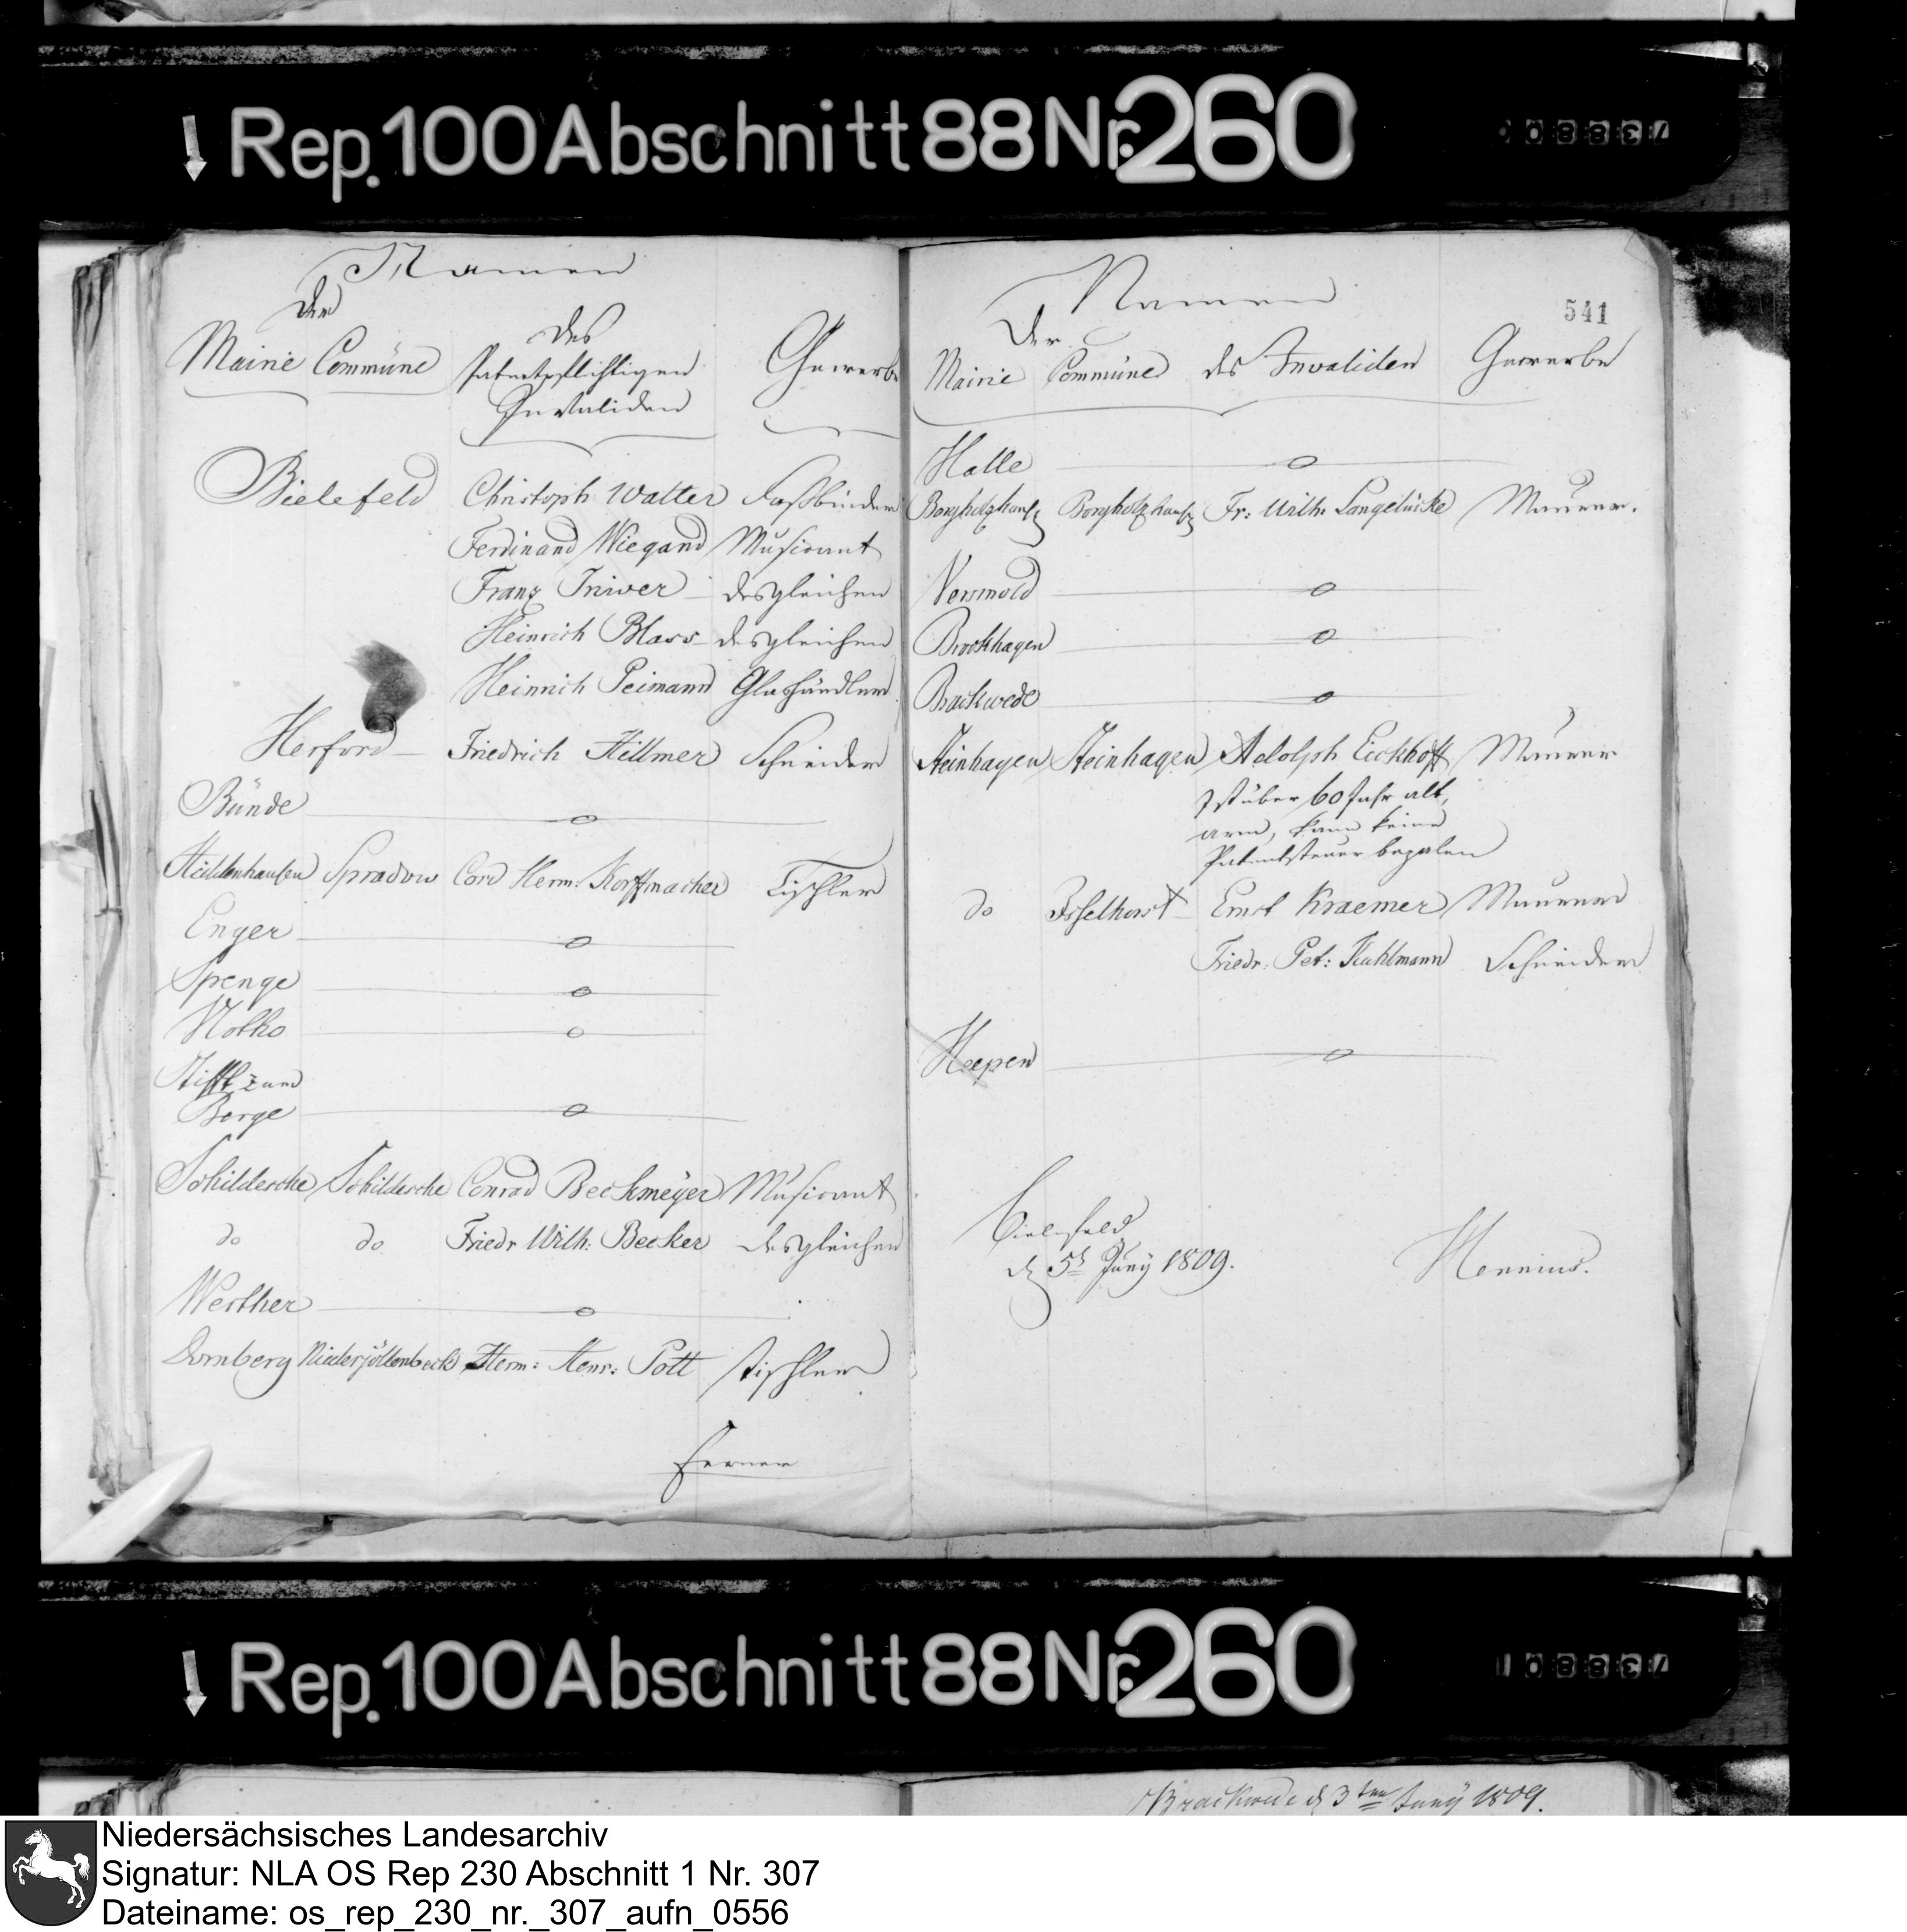 Rep. 100 Abschnitt 88 Nr. 260
73880
Namen
Der
Mairie Commüne
des
Patentpflichtigen
Invaliden
Gewerbe
Bielefeld Christoph Walter Faßbinder
Ferdinand Wiegand Musicant
Franz desgleichen
Heinrich Blass desgleichen
Heinrich Peimann Glashändler
Herford Friedrich Hillmer Schneider
Bünde o
Hiddenhausen Spradow Cord Herm: Korffmacher Tischler
Enger o
Spenge o
Vlotho o
Stifft zum
Berge o
Schildesche Schildesche Conrad Beckmeÿer Musicant
do do Friedr Wilh: Becker desgleichen
Werther o
Dornberg Niederjöllenbeck Herm: Henr: Pott Tischler
Ferner
541
Namen
Der
Mairie Commüne des Invaliden Gewerbe
Halle o
Borgholzhaus Borgholzhaus Fr: Wilh: Langelücke Maurer.
Versmold o
Brockhagen o
Brackwede o
Steinhagen Steinhagen Adolph Eickhoff Maurer
Ist über 60 Jahr alt,
arm, kann keine
Patentsteuer bezalen
do Isselhorst Ernst Kraemer Maurer
Friedr: Pet: Kuhlmann Schneider
Heepen o
Bielefeld
d 5t Junÿ 1809.
Mennius.
Rep. 100 Abschnitt 88 Nr. 260
73880
Brackwede d 3ten Junÿ 1809.
Niedersächsisches Landesarchiv
Signatur: NLA OS Rep 230 Abschnitt 1 Nr. 307
Dateiname: os_rep_230_nr._307_aufn_0556